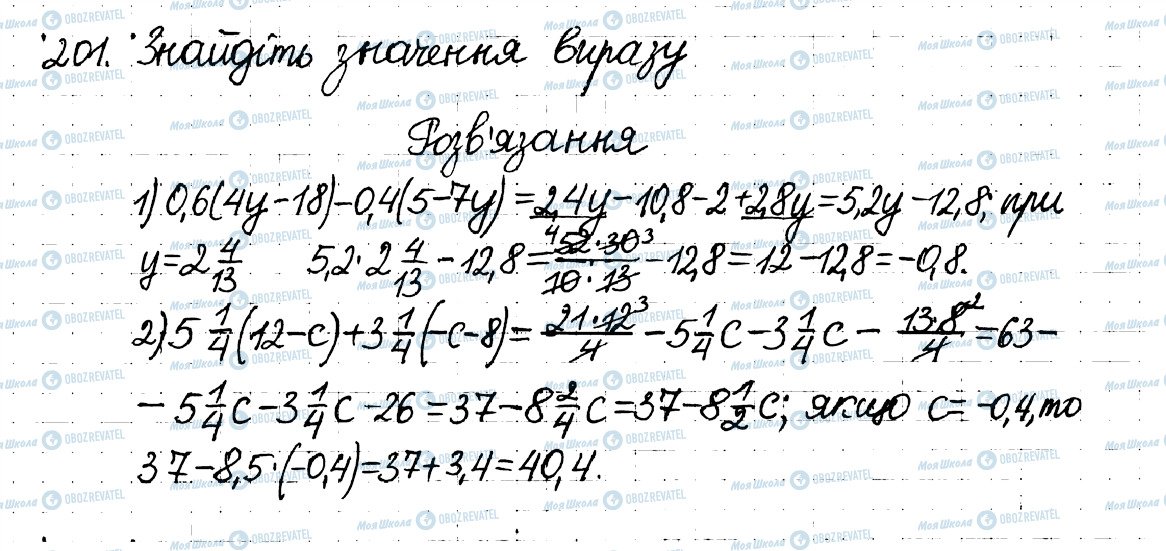 201. Знайдіть значення виразу
Розв'язання
1) 0,6(4y-18)-0,4(5-7y)=2,4y-10,8-2+2,8y=5,2y-12,8; при
y=2 4/13   5,2·2 4/13 - 12,8 = (52·30)/(10·13) - 12,8 = 12-12,8 = -0,8.
2) 5 1/4(12-c)+3 1/4(-c-8)= (21·12)/4 - 5 1/4 c - 3 1/4 c - (13·8)/4 = 63-
- 5 1/4 c - 3 1/4 c - 26 = 37 - 8 2/4 c = 37 - 8 1/2 c; якщо c = -0,4, то
37-8,5·(-0,4)=37+3,4=40,4.